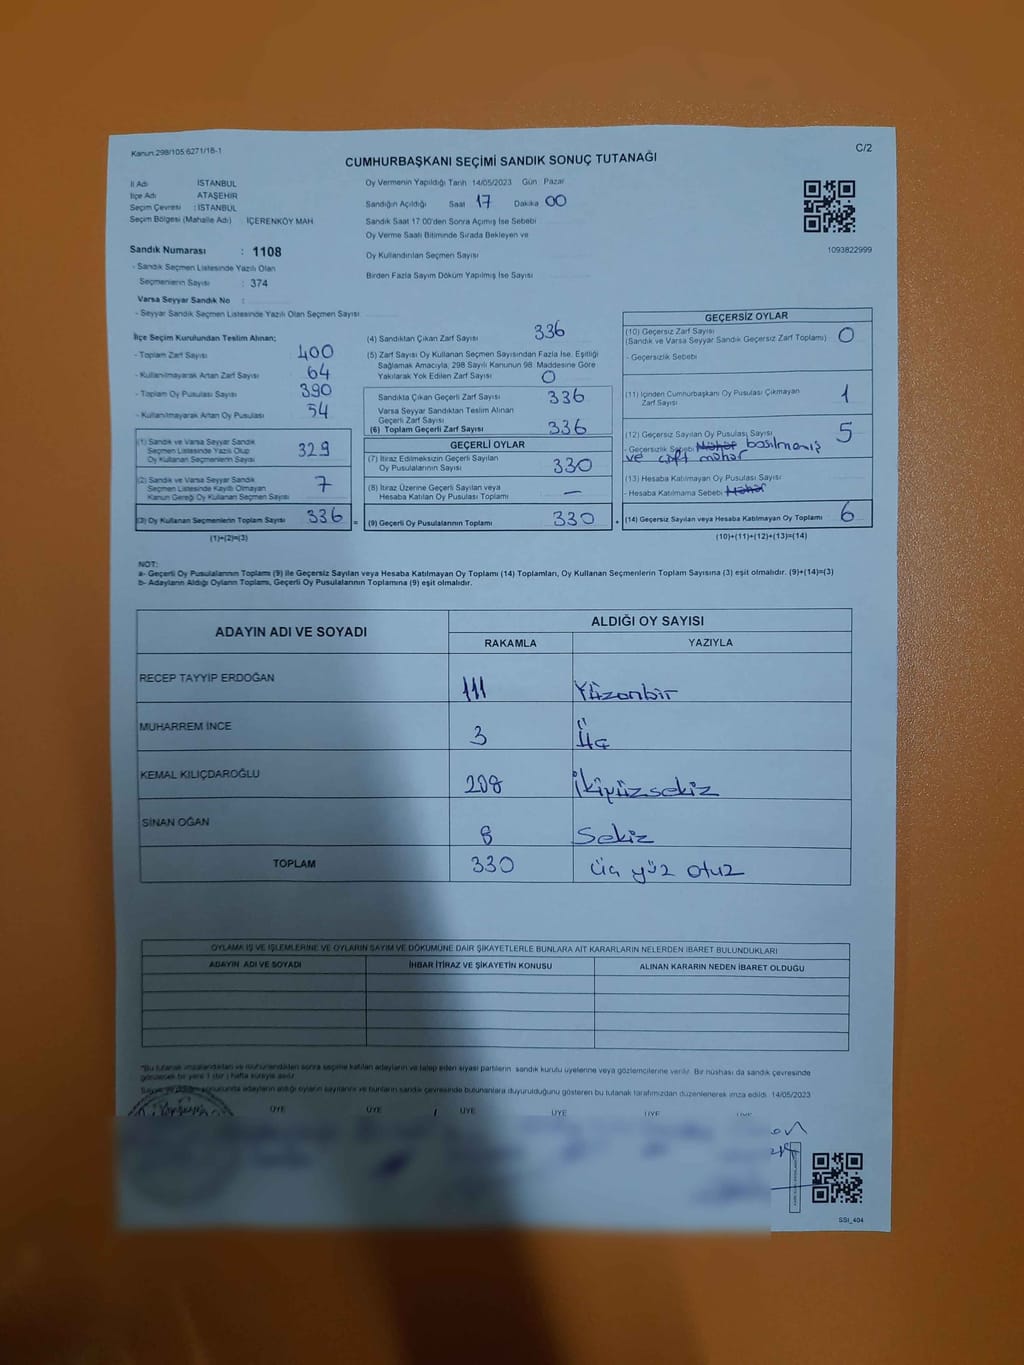 Kanun:298/105;6271/18-1
C/2
CUMHURBAŞKANI SEÇİMİ SANDIK SONUÇ TUTANAĞI
İl Adı İSTANBUL
İlçe Adı ATAŞEHİR
Seçim Çevresi : İSTANBUL
Seçim Bölgesi (Mahalle Adı) İÇERENKÖY MAH.
Oy Vermenin Yapıldığı Tarih 14/05/2023 Gün Pazar
Sandığın Açıldığı Saat 17 Dakika 00
Sandık Saat 17:00'den Sonra Açımış İse Sebebi
Oy Verme Saati Bitiminde Sırada Bekleyen ve
Oy Kullandırılan Seçmen Sayısı
Birden Fazla Sayım Döküm Yapılmış İse Sayısı
1093822999
Sandık Numarası : 1108
- Sandık Seçmen Listesinde Yazılı Olan
Seçmenlerin Sayısı : 374
Varsa Seyyar Sandık No :
- Seyyar Sandık Seçmen Listesinde Yazılı Olan Seçmen Sayısı
İlçe Seçim Kurulundan Teslim Alınan;
- Toplam Zarf Sayısı 400
- Kullanılmayarak Artan Zarf Sayısı 64
- Toplam Oy Pusulası Sayısı 390
- Kullanılmayarak Artan Oy Pusulası 54
(1) Sandık ve Varsa Seyyar Sandık
Seçmen Listesinde Yazılı Olup
Oy Kullanan Seçmenlerin Sayısı 329
(2) Sandık ve Varsa Seyyar Sandık
Seçmen Listesinde Kayıtlı Olmayan
Kanun Gereği Oy Kullanan Seçmen Sayısı 7
(3) Oy Kullanan Seçmenlerin Toplam Sayısı 336 =
(1)+(2)=(3)
(4) Sandıktan Çıkan Zarf Sayısı 336
(5) Zarf Sayısı Oy Kullanan Seçmen Sayısından Fazla İse, Eşitliği
Sağlamak Amacıyla, 298 Sayılı Kanunun 98. Maddesine Göre
Yakılarak Yok Edilen Zarf Sayısı 0
Sandıkta Çıkan Geçerli Zarf Sayısı 336
Varsa Seyyar Sandıktan Teslim Alınan
Geçerli Zarf Sayısı
(6) Toplam Geçerli Zarf Sayısı 336
GEÇERLİ OYLAR
(7) İtiraz Edilmeksizin Geçerli Sayılan
Oy Pusulalarının Sayısı 330
(8) İtiraz Üzerine Geçerli Sayılan veya
Hesaba Katılan Oy Pusulası Toplamı —
(9) Geçerli Oy Pusulalarının Toplamı 330 +
GEÇERSİZ OYLAR
(10) Geçersiz Zarf Sayısı
(Sandık ve Varsa Seyyar Sandık Geçersiz Zarf Toplamı) 0
- Geçersizlik Sebebi
(11) İçinden Cumhurbaşkanı Oy Pusulası Çıkmayan
Zarf Sayısı 1
(12) Geçersiz Sayılan Oy Pusulası Sayısı 5
- Geçersizlik Sebebi Mühür basılmamış
ve çift mühür
(13) Hesaba Katılmayan Oy Pusulası Sayısı
- Hesaba Katılmama Sebebi Mühür
(14) Geçersiz Sayılan veya Hesaba Katılmayan Oy Toplamı 6
(10)+(11)+(12)+(13)=(14)
NOT:
a- Geçerli Oy Pusulalarının Toplamı (9) ile Geçersiz Sayılan veya Hesaba Katılmayan Oy Toplamı (14) Toplamları, Oy Kullanan Seçmenlerin Toplam Sayısına (3) eşit olmalıdır. (9)+(14)=(3)
b- Adayların Aldığı Oyların Toplamı, Geçerli Oy Pusulalarının Toplamına (9) eşit olmalıdır.
ADAYIN ADI VE SOYADI
ALDIĞI OY SAYISI
RAKAMLA YAZIYLA
RECEP TAYYİP ERDOĞAN 111 Yüzonbir
MUHARREM İNCE 3 Üç
KEMAL KILIÇDAROĞLU 208 İkiyüzsekiz
SİNAN OĞAN 8 Sekiz
TOPLAM 330 üç yüz otuz
OYLAMA İŞ VE İŞLEMLERİNE VE OYLARIN SAYIM VE DÖKÜMÜNE DAİR ŞİKAYETLERLE BUNLARA AİT KARARLARIN NELERDEN İBARET BULUNDUKLARI
ADAYIN ADI VE SOYADI İHBAR İTİRAZ VE ŞİKAYETİN KONUSU ALINAN KARARIN NEDEN İBARET OLDUĞU
"Bu tutanak imzalandıktan ve mühürlendikten sonra seçime katılan adayların ve talep eden siyasi partilerin sandık kurulu üyelerine veya gözlemcilerine verilir. Bir nüshası da sandık çevresinde
görülecek bir yere 1 (bir) hafta süreyle asılır
sonucunda adayların aldığı oyların sayılarını ve bunların sandık çevresinde bulunanlara duyurulduğunu gösteren bu tutanak tarafımızdan düzenlenerek imza edildi. 14/05/2023
ÜYE ÜYE ÜYE ÜYE ÜYE ÜYE
SSI_404